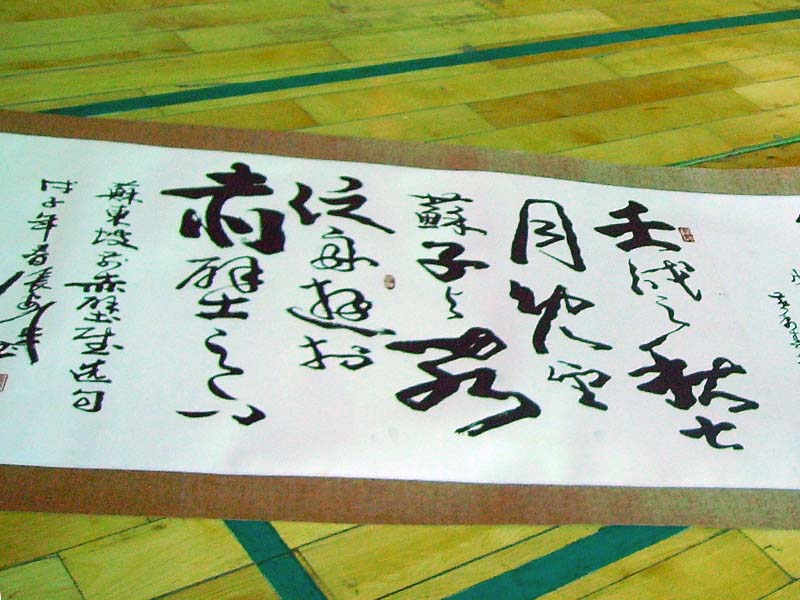 壬戌之秋七
月既望
蘇子与客
泛舟遊於
赤壁之下
蘇東坡前赤壁賦選句
戊子年春